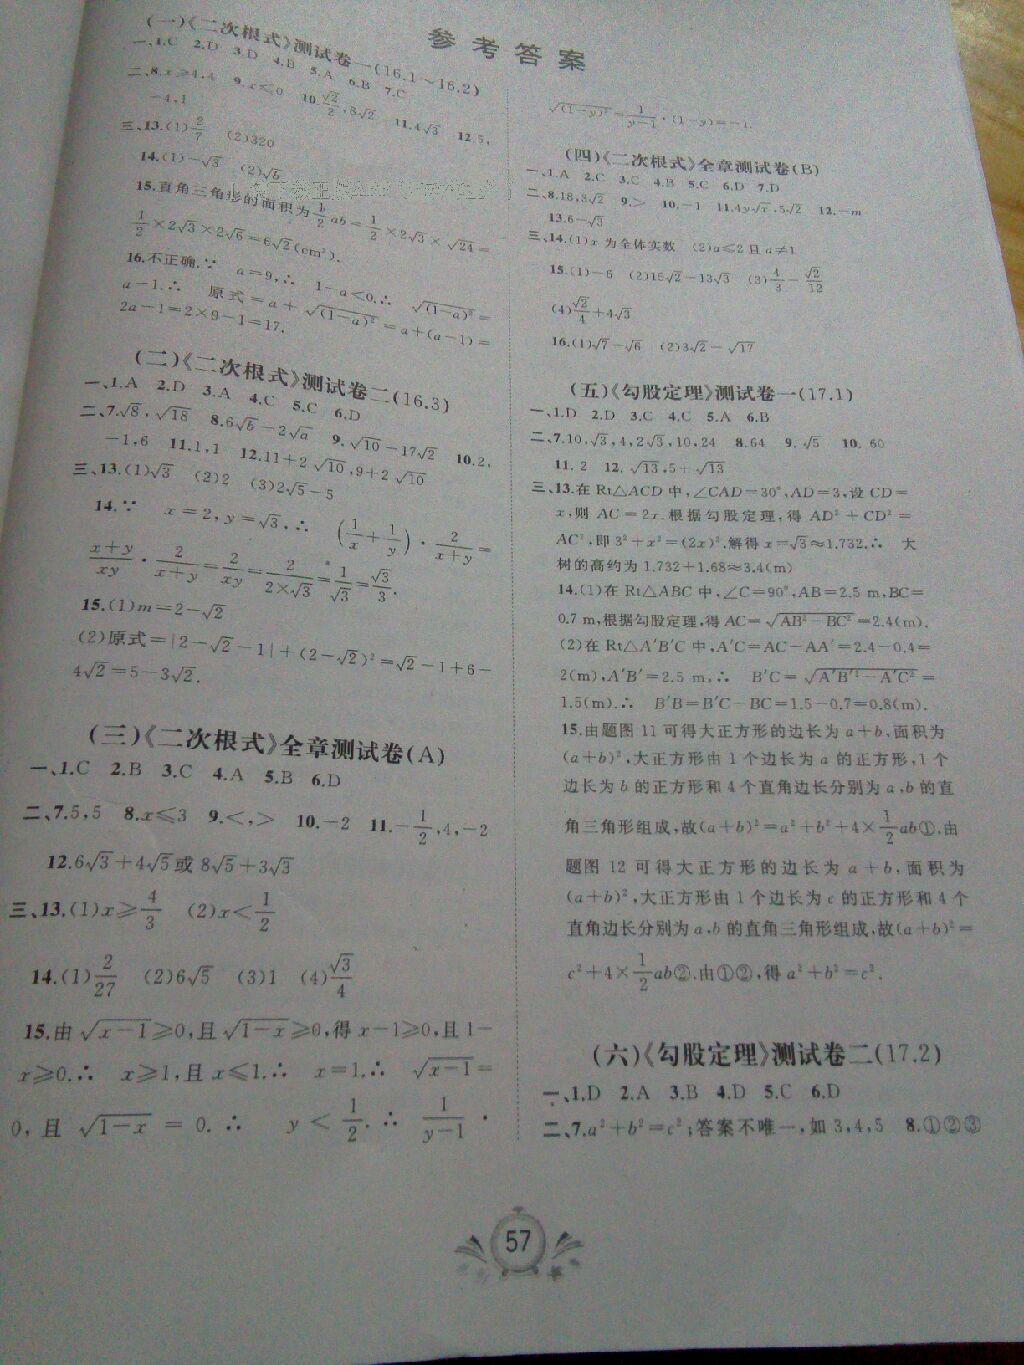 参考答案
(一)《二次根式》测试卷一(16.1～16.2)
一、1.C 2.D 3.D 4.B 5.A 6.B 7.C
二、8.x≥4,4 9.x≤0 10.√2/2,8√2 11.4√3 12.5,
-4,1
三、13.(1)2/7 (2)320
14.(1)-√3 (2)√6
15.直角三角形的面积为1/2ab=1/2×2√3×√24=
1/2×2√3×2√6=6√2(cm²).
16.不正确.∵ a=9,∴ 1-a<0.∴ √(1-a)²=
a-1.∴ 原式=a+√(1-a)²=a+(a-1)=
2a-1=2×9-1=17.
(二)《二次根式》测试卷二(16.3)
一、1.A 2.D 3.A 4.C 5.C 6.D
二、7.√8,√18 8.6√6-2√a 9.√10-17√2 10.2,
-1,6 11.1,1 12.11+2√10,9+2√10
三、13.(1)√3 (2)2 (3)2√5-5
14.∵ x=2,y=√3,∴ (1/x+1/y)·2/(x+y)=
(x+y)/xy·2/(x+y)=2/xy=2/(2×√3)=1/√3=√3/3.
15.(1)m=2-√2
(2)原式=|2-√2-1|+(2-√2)²=√2-1+6-
4√2=5-3√2.
(三)《二次根式》全章测试卷(A)
一、1.C 2.B 3.C 4.A 5.B 6.D
二、7.5,5 8.x≤3 9.<,> 10.-2 11.-1/2,4,-2
12.6√3+4√5或8√5+3√3
三、13.(1)x≥4/3 (2)x<1/2
14.(1)2/27 (2)6√5 (3)1 (4)√3/4
15.由√x-1≥0,且√1-x≥0,得x-1≥0,且1-
x≥0.∴ x≥1,且x≤1.∴ x=1.∴ √x-1=
0,且√1-x=0.∴ y<1/2.∴ 1/(y-1)·
√(1-y)²=1/(y-1)·(1-y)=-1.
(四)《二次根式》全章测试卷(B)
一、1.A 2.C 3.C 4.B 5.C 6.D 7.D
二、8.18,3√2 9.> 10.-1 11.4y√x,5√2 12.-m
13.6-√3
三、14.(1)x为全体实数 (2)a≤2且a≠1
15.(1)-6 (2)15√2-13√3 (3)4/3-√2/12
(4)√2/4+4√3
16.(1)√7-√6 (2)3√2-√17
(五)《勾股定理》测试卷一(17.1)
一、1.D 2.D 3.C 4.C 5.A 6.B
二、7.10,√3,4,2√3,10,24 8.64 9.√5 10.60
11.2 12.√13,5+√13
三、13.在Rt△ACD中,∠CAD=30°,AD=3,设CD=
x,则AC=2x.根据勾股定理,得AD²+CD²=
AC²,即3²+x²=(2x)².解得x=√3≈1.732.∴ 大
树的高约为1.732+1.68≈3.4(m)
14.(1)在Rt△ABC中,∠C=90°,AB=2.5 m,BC=
0.7 m,根据勾股定理,得AC=√AB²-BC²=2.4(m).
(2)在Rt△A′B′C中,A′C=AC-AA′=2.4-0.4=
2(m),A′B′=2.5 m,∴ B′C=√A′B′²-A′C²=
1.5(m).∴ B′B=B′C-BC=1.5-0.7=0.8(m).
15.由题图11可得大正方形的边长为a+b,面积为
(a+b)²,大正方形由1个边长为a的正方形,1个
边长为b的正方形和4个直角边长分别为a,b的直
角三角形组成,故(a+b)²=a²+b²+4×1/2ab①.由
题图12可得大正方形的边长为a+b,面积为
(a+b)²,大正方形由1个边长为c的正方形和4个
直角边长分别为a,b的直角三角形组成,故(a+b)²=
c²+4×1/2ab②.由①②,得a²+b²=c².
(六)《勾股定理》测试卷二(17.2)
一、1.D 2.A 3.B 4.D 5.C 6.D
二、7.a²+b²=c²;答案不唯一,如3,4,5 8.①②③
57